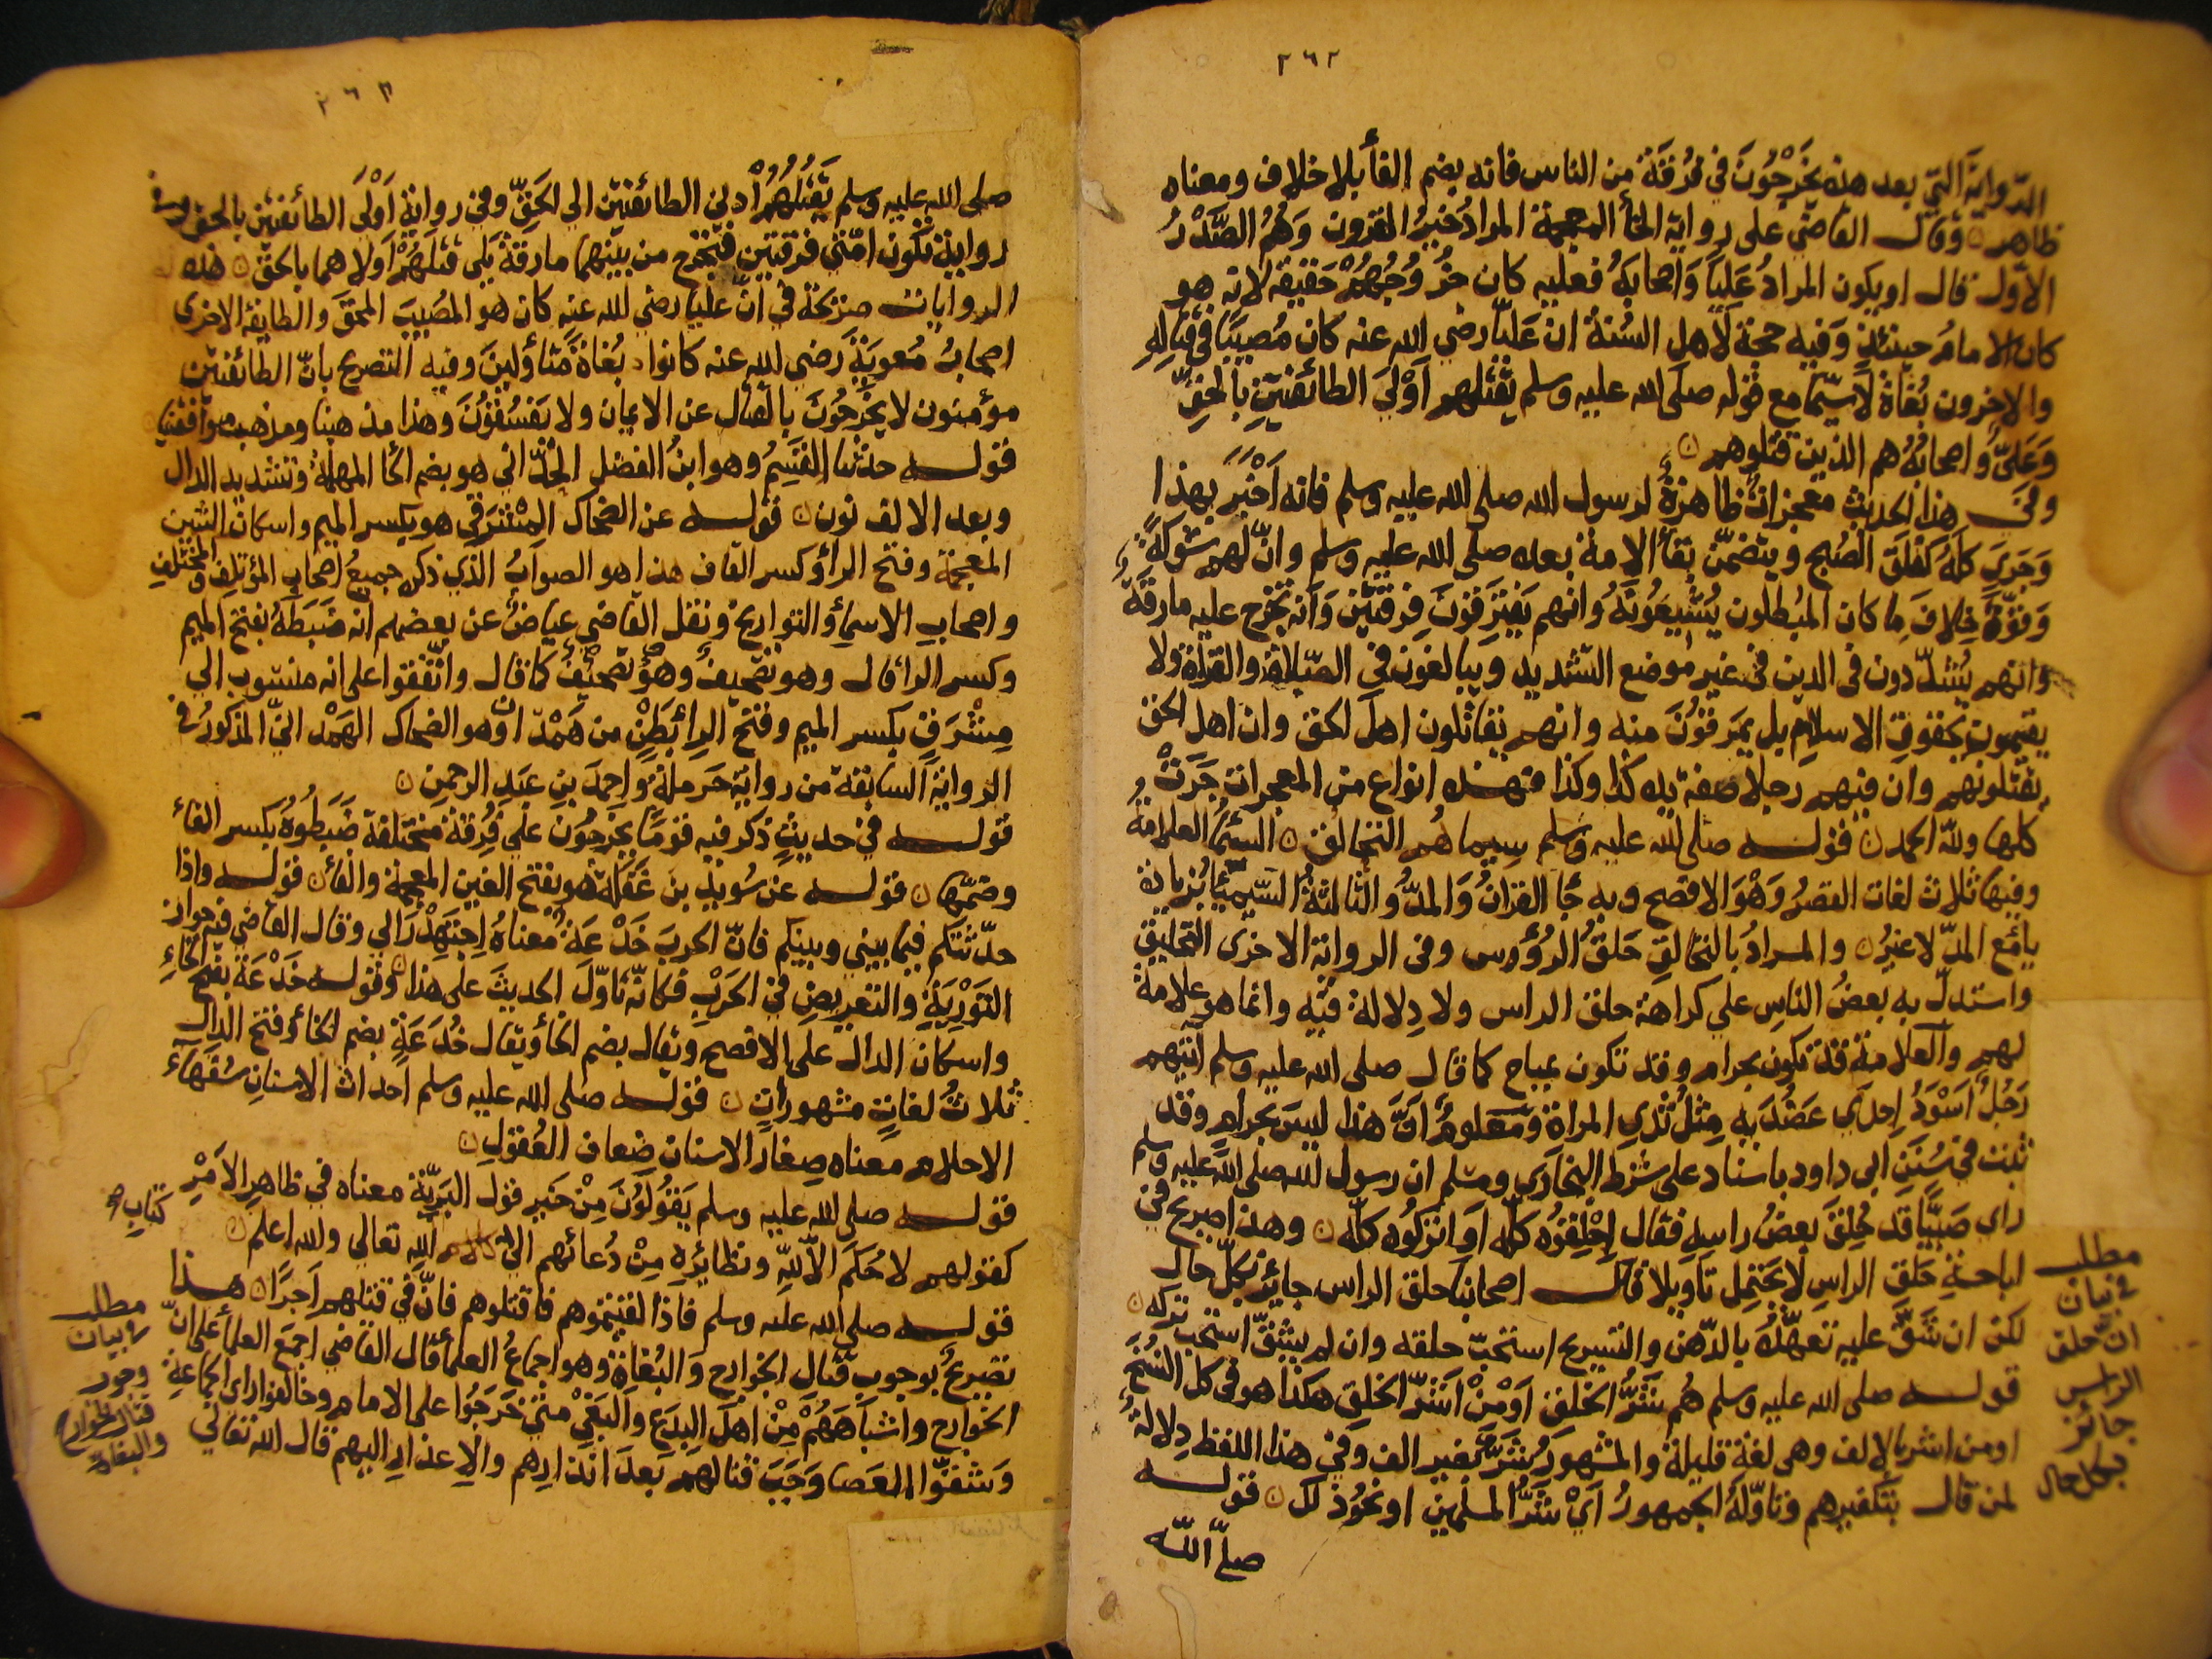 ٢٦٢
الرواية التي بعد هذه يَخْرُجُونَ في فُرْقَة من الناس فانه بضم الفأ بلا خلاف ومعناه
ظاهر ۞ وقال القاضي على رواية الخأ المعجمة المرادُ خيرُ القرون وَهُمُ الصَّدْرُ
الاوّل قال او يكون المرادُ عَلِيًا وَاصحابَهُ فعليه كان خرُوُجُهُمْ حَقيقَة لانه هو
كان الامامُ حينئذٍ وَفيه حجة لاهل السُّنةُ ان عَليّا رضي الله عنه كان مُصيبًا في قتاله
والاخرون بُغاةٌ لاسيّما مع قوله صلى الله عليه وسلم يَقْتُلهم اَوْلَي الطائفتَيْنِ بالحقِّ
وَعَليٌّ واصحابُهُ هم الذين قتلوهم ۞
وفي هذا الحديث معجزاتٌ ظاهرَةٌ لرسول الله صلى الله عليه وسلم فانه اَخْبَرَ بهذا
وَجَرَي كلهُ كفَلَقِ الصُبح ويتضمّنُ بقأ الامة بعده صلى الله عليه وسلم وانّ لهم شوكةً
وَقوّةً خِلافَ ما كان المُبطلون يُشيعُونَهُ وانهم يَفترِقونَ فِرقتَيْن وَانه تخْرج عليه مارقَةٌ
وانهم يُشدّدون في الدين في غير موضع التشديد ويبالغون في الصّلاة والقراة ولا
يقيمون بحقوق الاسلام بل يَمرقوُنَ منه وانهم يقاتلون اهلَ الحق وان اهل الحق
يَقتلونهم وان فيهم رجلا صفة يده كذا وكذا فهذه انواع من المعجزات جَرَتْ
كلها ولله الحمد ۞ قوله صلى الله عليه وسلم سِيماهُم التحالق ۞ السّيمَا العلامةُ
وفيها ثلاث لغات القصرُ وَهْوَ الافصح وبه جَا القرانُ وَالمدُّ وَالثالثةُ السّيمِيَّأ بزيادة
يأ مع المدّ لا غيرُ ۞ والمرادُ بالتحالقِ حَلقُ الرُؤُوس وفي الرواية الاخرى التحليق
واستدلّ به بعضُ الناس علي كراهة حلق الراس ولا دِلالة فيه وانما هو علامة
لهم والعلامة قد تكون بحرام وقد تكون بمباح كما قال صلى الله عليه وسلم ايتهم
رَجُلٌ اَسْوَدُ احدَي عَضُدَيه مِثلُ ثَدْيِ المراة وَمَعلومٌ اَنَّ هذا ليسَ بحرام وقد
ثبت في سُنَن ابى داود باسناد على شرط البخاري ومسلم ان رسول الله صلى الله عليه وسلم
راى صَبيًّا قد حُلِقَ بعضُ راسه فقال اِحْلِقوُه كلّه اَو اتركوُه كلّه ۞ وهذا صريح في
اباحة حَلق الراسِ لا يحتمل تأويلا قال اصحابنا حلق الراس جائز بكلّ حال
لكن ان شَقَّ عليه تعهّدُهُ بالدّهن والتسريح استحبّ حلقه وان لم يشقّ استحب تركه ۞
قوله صلى الله عليه وسلم هُم شَرُّ الخلقِ اَوْ مِنْ اَشَرِّ الخلقِ هكذا هو في كل النُّسَخ
او من اشر بالالف وهي لغة قليلة والمشهورُ شَرُّ بغير الف وفي هذا اللفظ دِلالةٌ
لمن قال بتكفيرهم وتاوّلهُ الجمهورُ اَيْ شَرُّ المسلمين او نحوُ ذلك ۞ قوله
صلى الله
مطلب
في بيان
انّ حلق
الراس
جائز
بكل حال
٢٦٣
صلى الله عليه وسلم يَقْتُلُهُمْ اَدني الطائفتَيْن الي الحَقِّ وفي رواية اَوْلَى الطائفتَيْن بالحق وفي
رواية تكون امّتي فرقتَيْنِ فتخرج من بينهما مارقة يَلي قتلَهُمْ اَولاهما بالحق ۞ هذه
الروايات صريحة في انّ عليا رضي الله عنه كان هو المصُيبَ المحقَّ والطايفة الاخرى
اصحابُ مُعوية رَضي الله عنه كانوا بُغاةً متأوّلينَ وفيه التصريح بانّ الطائفتَيْن
مؤمنون لا يخرُجُونَ بالقتال عن الايمان ولا يفسُقوُنَ وهذا مذهبنا ومذهب موافقينا ۞
قوله حدثنا القسِيمُ وهو ابنُ الفضل الحُدّاني هو بضم الحأ المهملة وتشديد الدال
وبعد الالف نون ۞ قوله عن الضحاك المِشرَقي هو بكسر الميم واسكان الشين
المعجمة وفتح الرأ وكسر القاف هذا هو الصوابُ الذي ذكره جميعُ اصحاب المؤتلف والمختلف
واصحاب الاسمأ والتواريخ ونقل القاضي عياضٌ عن بعضهم انه ضَبَطَهُ بفتح الميم
وكسر الرا قال وهو تصحيف وَهُوَ تصحيفٌ كما قال واتّفقوا على انه منسوب الي
مِشْرَقٍ بكسر الميم وفتح الرأ بَطنٍ من هَمْدَان وهو الضحاك الهَمْدانيّ المذكورُ في
الرواية السابقة من رواية حَرملة وَاحمدَ بن عَبدِ الرحمن ۞
قوله في حديث ذكر فيه قومًا يخرجُونَ علي فِرقة مختلفة ضَبَطُوهُ بكسر الفأ
وضمّها ۞ قوله عن سُوَيد بن غَفَلة هو بفتح الغين المعجمة والفأ ۞ قوله واذا
حدّثتكم فيما بيني وبينكم فانّ الحربَ خَدْعَة مَعناهُ اِجتهدْ رَأيي وقال القاضي فيه جواز
التورِيَة والتعريض في الحَرْبِ فكأنّه تأوّلَ الحديثَ على هذا وقوله خَدْعَة بفتح الخاءِ
واسكان الدال على الافصح ويقال بضم الخأ ويقال خُدَعَة بضم الخأ وفتح الدال
ثلاثُ لغاتٍ مشهورات ۞ قوله صلى الله عليه وسلم احداث الاسنانِ سُفهَآء
الاحلام معناه صِغارُ الاسنان ضِعاف العُقولِ ۞
قوله صلى الله عليه وسلم يَقوُلوُنَ مِنْ خَير قول البَرِيّة معناه في ظاهر الاَمْرِ
كقولهم لا حُكمَ الّا لِلّه ونظائرِه مِنْ دُعائهم الي كتاب الله تعالي والله اعلم ۞
قوله صلى الله عليه وسلم فاذا لقيتموهم فاقتلوهم فانّ في قتلهم اَجرًا ۞ هذا
تصريحٌ بوجوب قتال الخوارج وَالبُغاةِ وهو اجماعُ العلمأ قال القاضي اجمَعَ العلمأ على انّ
الخوارج واشباهَهُمْ مِنْ اهل البدَع والبغي متى خَرَجُوا على الامام وخالفوا راي الجماعةِ
وَشقوّا العَصا وَجَبَ قتالهم بَعدَ انذارهم والاِعذارِ اليهم قال الله تعالي
كتاب
مطلب
في بيان
وجوب
قتال الخوارج
والبغاة